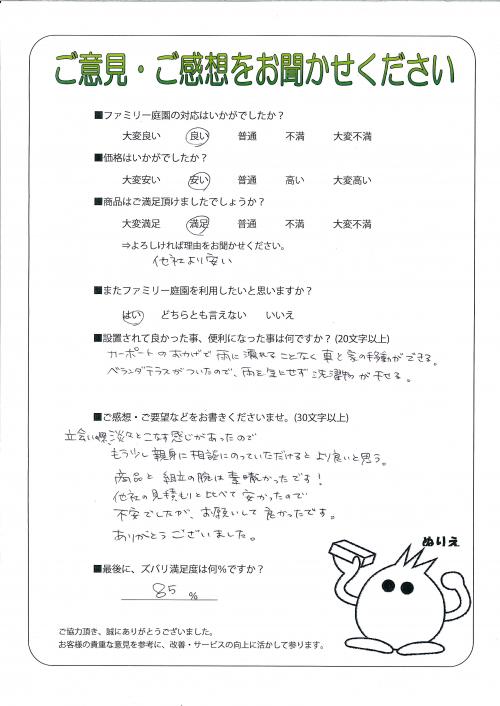 ご意見・ご感想をお聞かせください
■ファミリー庭園の対応はいかがでしたか？
大変良い 良い 普通 不満 大変不満
■価格はいかがでしたか？
大変安い 安い 普通 高い 大変高い
■商品はご満足頂けましたでしょうか？
大変満足 満足 普通 不満 大変不満
⇒よろしければ理由をお聞かせください。
他社より安い
■またファミリー庭園を利用したいと思いますか？
はい どちらとも言えない いいえ
■設置されて良かった事、便利になった事は何ですか？(20文字以上)
カーポートのおかげで雨に濡れることなく車と家の移動ができる。
ベランダテラスがついたので、雨を気にせず洗濯物が干せる。
■ご感想・ご要望などをお書きくださいませ。(30文字以上)
立会い際、淡々とこなす感じがあったので
もう少し親身に相談にのっていただけるとより良いと思う。
商品と組立の腕は素晴かったです！
他社の見積もりと比べて安かったので
不安でしたが、お願いして良かったです。
ありがとうございました。
ぬりえ
■最後に、ズバリ満足度は何％ですか？
85 %
ご協力頂き、誠にありがとうございました。
お客様の貴重な意見を参考に、改善・サービスの向上に活かして参ります。